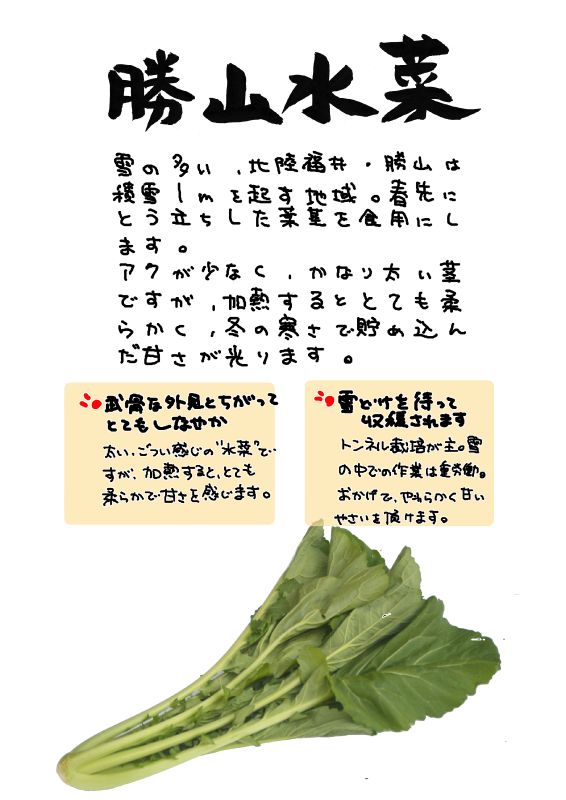 勝山水菜
雪の多い、北陸福井・勝山は
積雪1mを起す地域。春先に
とう立ちした葉茎を食用にし
ます。
アクが少なく、かなり太い茎
ですが、加熱するととても柔
らかく、冬の寒さで貯め込ん
だ甘さが光ります。
武骨な外見とちがって
とてもしなやか
太い、ごつい感じの"水菜"で
すが、加熱すると、とても
柔らかで甘さを感じます。
雪どけを待って
収穫されます
トンネル栽培が主。雪
の中での作業は重労働。
おかげで、やわらかく甘い
やさいを頂けます。